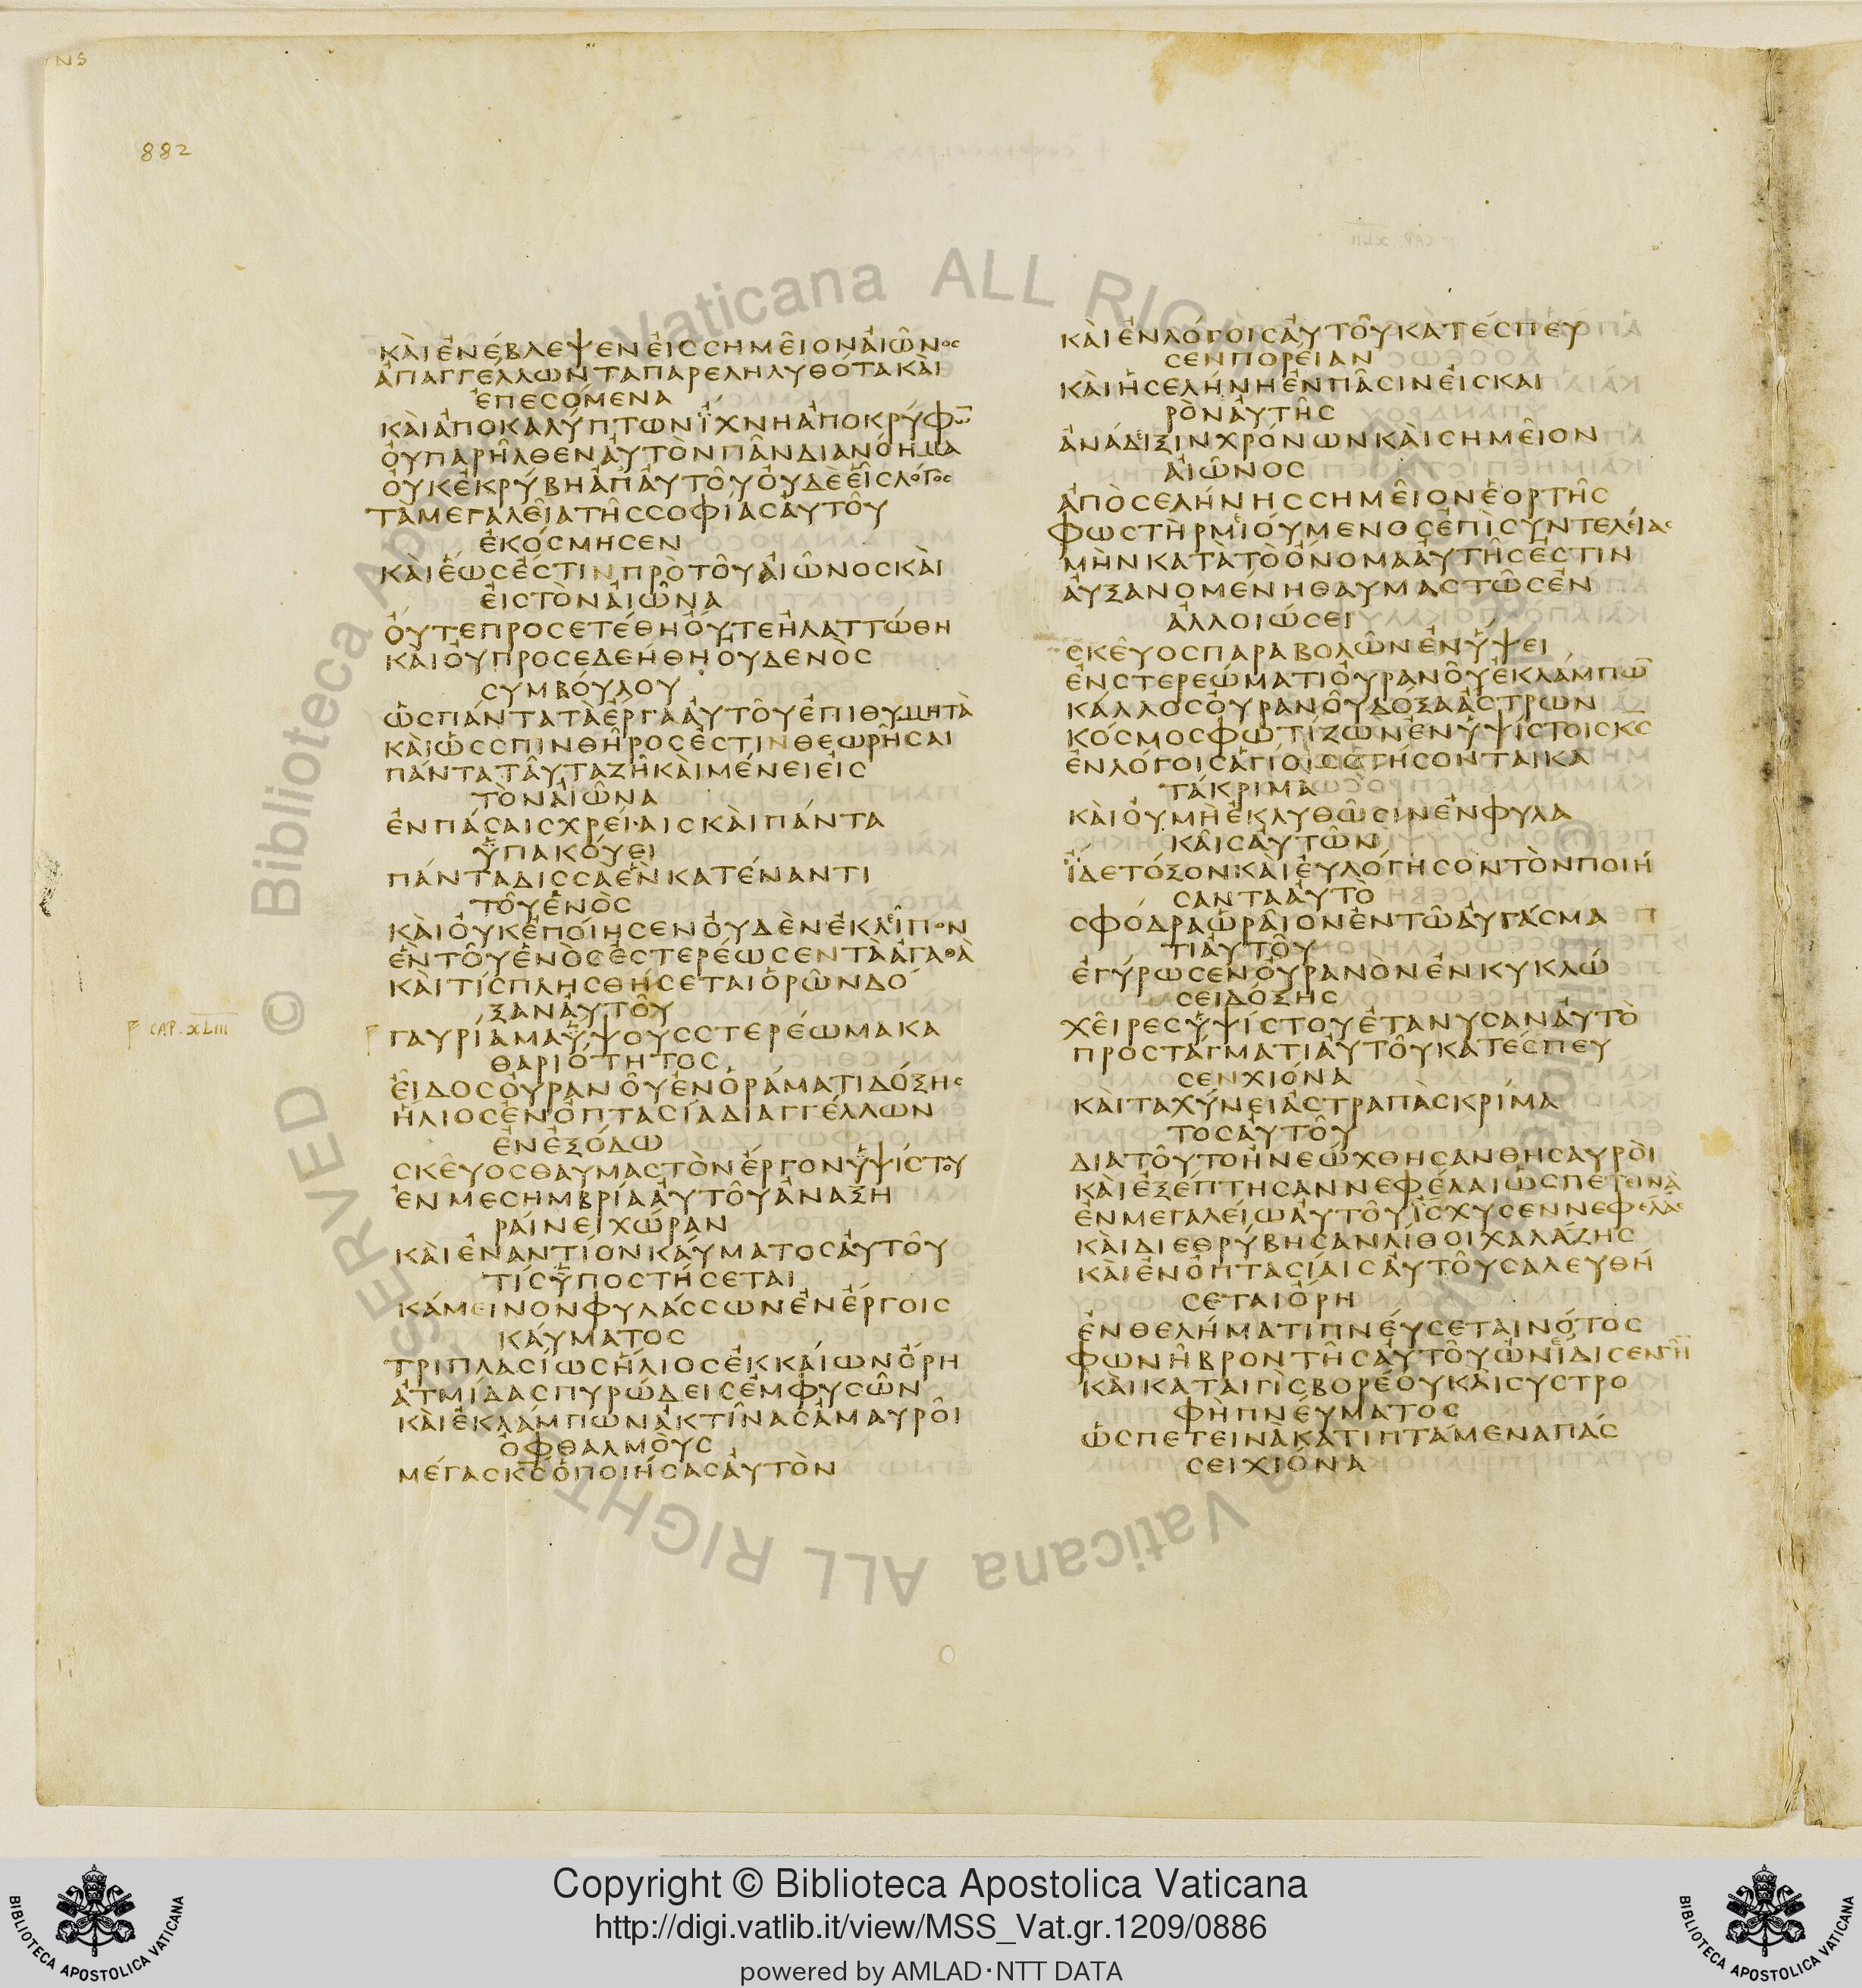 NS
882
ΚΑΙΕΝΕΒΛΕΨΕΝΕΙCCΗΜΕΙΟΝΑΙΩΝΟC
ΑΠΑΓΓΕΛΛΩΝΤΑΠΑΡΕΛΗΛΥΘΟΤΑΚΑΙ
ΕΠΕCΟΜΕΝΑ
ΚΑΙΑΠΟΚΑΛΥΠΤΩΝΪΧΝΗΑΠΟΚΡΥΦΩ̅
ΟΥΠΑΡΗΛΘΕΝΑΥΤΟΝΠΑΝΔΙΑΝΟΗΜΑ
ΟΥΚΕΚΡΥΒΗΑΠΑΥΤΟΥΟΥΔΕΕΙCΛΟΓΟC
ΤΑΜΕΓΑΛΕΙΑΤΗCCΟΦΙΑCΑΥΤΟΥ
ΕΚΟCΜΗCΕΝ
ΚΑΙΕΩCΕCΤΙΝΠΡΟΤΟΥΑΙΩΝΟCΚΑΙ
ΕΙCΤΟΝΑΙΩΝΑ
ΟΥΤΕΠΡΟCΕΤΕΘΗΟΥΤΕΗΛΑΤΤΩΘΗ
ΚΑΙΟΥΠΡΟCΕΔΕΗΘΗΟΥΔΕΝΟC
CΥΜΒΟΥΛΟΥ
ΩCΠΑΝΤΑΤΑΕΡΓΑΑΥΤΟΥΕΠΙΘΥΜΗΤΑ
ΚΑΙΩCCΠΙΝΘΗΡΟCΕCΤΙΝΘΕΩΡΗCΑΙ
ΠΑΝΤΑΤΑΥΤΑΖΗΚΑΙΜΕΝΕΙΕΙC
ΤΟΝΑΙΩΝΑ
ΕΝΠΑCΑΙCΧΡΕΙΑΙCΚΑΙΠΑΝΤΑ
ΫΠΑΚΟΥΕΙ
ΠΑΝΤΑΔΙCCΑΕΝΚΑΤΕΝΑΝΤΙ
ΤΟΥΕΝΟC
ΚΑΙΟΥΚΕΠΟΙΗCΕΝΟΥΔΕΝΕΚΛΕΙΠΟΝ
ΕΝΤΟΥΕΝΟCΕCΤΕΡΕΩCΕΝΤΑΑΓΑΘΑ
ΚΑΙΤΙCΠΛΗCΘΗCΕΤΑΙΟΡΩΝΔΟ
ΞΑΝΑΥΤΟΥ
CAP. XLIII
ΓΑΥΡΙΑΜΑΫΨΟΥCCΤΕΡΕΩΜΑΚΑ
ΘΑΡΙΟΤΗΤΟC
ΕΙΔΟCΟΥΡΑΝΟΥΕΝΟΡΑΜΑΤΙΔΟΞΗC
ΗΛΙΟCΕΝΟΠΤΑCΙΑΔΙΑΓΓΕΛΛΩΝ
ΕΝΕΞΟΔΩ
CΚΕΥΟCΘΑΥΜΑCΤΟΝΕΡΓΟΝΫΨΙCΤΟΥ
ΕΝΜΕCΗΜΒΡΙΑΑΥΤΟΥΑΝΑΞΗ
ΡΑΙΝΕΙΧΩΡΑΝ
ΚΑΙΕΝΑΝΤΙΟΝΚΑΥΜΑΤΟCΑΥΤΟΥ
ΤΙCΫΠΟCΤΗCΕΤΑΙ
ΚΑΜΕΙΝΟΝΦΥΛΑCCΩΝΕΝΕΡΓΟΙC
ΚΑΥΜΑΤΟC
ΤΡΙΠΛΑCΙΩCΗΛΙΟCΕΚΚΑΙΩΝΟΡΗ
ΑΤΜΙΔΑCΠΥΡΩΔΕΙCΕΜΦΥCΩΝ
ΚΑΙΕΚΛΑΜΠΩΝΑΚΤΙΝΑCΑΜΑΥΡΟΙ
ΟΦΘΑΛΜΟΥC
ΜΕΓΑCΚ̅C̅ΟΠΟΙΗCΑCΑΥΤΟΝ
ΚΑΙΕΝΛΟΓΟΙCΑΥΤΟΥΚΑΤΕCΠΕΥ
CΕΝΠΟΡΕΙΑΝ
ΚΑΙΗCΕΛΗΝΗΕΝΠΑCΙΝΕΙCΚΑΙ
ΡΟΝΑΥΤΗC
ΑΝΑΔΕΙΞΙΝΧΡΟΝΩΝΚΑΙCΗΜΕΙΟΝ
ΑΙΩΝΟC
ΑΠΟCΕΛΗΝΗCCΗΜΕΙΟΝΕΟΡΤΗC
ΦΩCΤΗΡΜΕΙΟΥΜΕΝΟCΕΠΙCΥΝΤΕΛΕΙΑC
ΜΗΝΚΑΤΑΤΟΟΝΟΜΑΑΥΤΗCΕCΤΙΝ
ΑΥΞΑΝΟΜΕΝΗΘΑΥΜΑCΤΩCΕΝ
ΑΛΛΟΙΩCΕΙ
CΚΕΥΟCΠΑΡΑΒΟΛΩΝΕΝΫΨΕΙ
ΕΝCΤΕΡΕΩΜΑΤΙΟΥΡΑΝΟΥΕΚΛΑΜΠΩ̅
ΚΑΛΛΟCΟΥΡΑΝΟΥΔΟΞΑΑCΤΡΩΝ
ΚΟCΜΟCΦΩΤΙΖΩΝΕΝΫΨΙCΤΟΙCΚ̅C̅
ΕΝΛΟΓΟΙCΑΓΙΟΙCCΤΗCΟΝΤΑΙΚΑ
ΤΑΚΡΙΜΑ
ΚΑΙΟΥΜΗΕΚΛΥΘΩCΙΝΕΝΦΥΛΑ
ΚΑΙCΑΥΤΩΝ
ΪΔΕΤΟΞΟΝΚΑΙΕΥΛΟΓΗCΟΝΤΟΝΠΟΙΗ
CΑΝΤΑΑΥΤΟ
CΦΟΔΡΑΩΡΑΙΟΝΕΝΤΩΑΥΓΑCΜΑ
ΤΙΑΥΤΟΥ
ΕΓΥΡΩCΕΝΟΥΡΑΝΟΝΕΝΚΥΚΛΩ
CΕΙΔΟΞΗC
ΧΕΙΡΕCΫΨΙCΤΟΥΕΤΑΝΥCΑΝΑΥΤΟ
ΠΡΟCΤΑΓΜΑΤΙΑΥΤΟΥΚΑΤΕCΠΕΥ
CΕΝΧΙΟΝΑ
ΚΑΙΤΑΧΥΝΕΙΑCΤΡΑΠΑCΚΡΙΜΑ
ΤΟCΑΥΤΟΥ
ΔΙΑΤΟΥΤΟΗΝΕΩΧΘΗCΑΝΘΗCΑΥΡΟΙ
ΚΑΙΕΞΕΠΤΗCΑΝΝΕΦΕΛΑΙΩCΠΕΤΕΙΝΑ
ΕΝΜΕΓΑΛΕΙΩΑΥΤΟΥΙCΧΥCΕΝΝΕΦΕΛΑC
ΚΑΙΔΙΕΘΡΥΒΗCΑΝΛΙΘΟΙΧΑΛΑΖΗC
ΚΑΙΕΝΟΠΤΑCΙΑΙCΑΥΤΟΥCΑΛΕΥΘΗ
CΕΤΑΙΟΡΗ
ΕΝΘΕΛΗΜΑΤΙΠΝΕΥCΕΤΑΙΝΟΤΟC
ΦΩΝΗΒΡΟΝΤΗCΑΥΤΟΥΩΝΕΙΔΙCΕΝΓΗ̅
ΚΑΙΚΑΤΑΙΓΙCΒΟΡΕΟΥΚΑΙCΥCΤΡΟ
ΦΗΠΝΕΥΜΑΤΟC
ΩCΠΕΤΕΙΝΑΚΑΤΙΠΤΑΜΕΝΑΠΑC
CΕΙΧΙΟΝΑ
© Biblioteca Apostolica Vaticana ALL RIGHTS RESERVED
Copyright © Biblioteca Apostolica Vaticana
http://digi.vatlib.it/view/MSS_Vat.gr.1209/0886
powered by AMLAD·NTT DATA
BIBLIOTECA APOSTOLICA VATICANA
BIBLIOTECA APOSTOLICA VATICANA